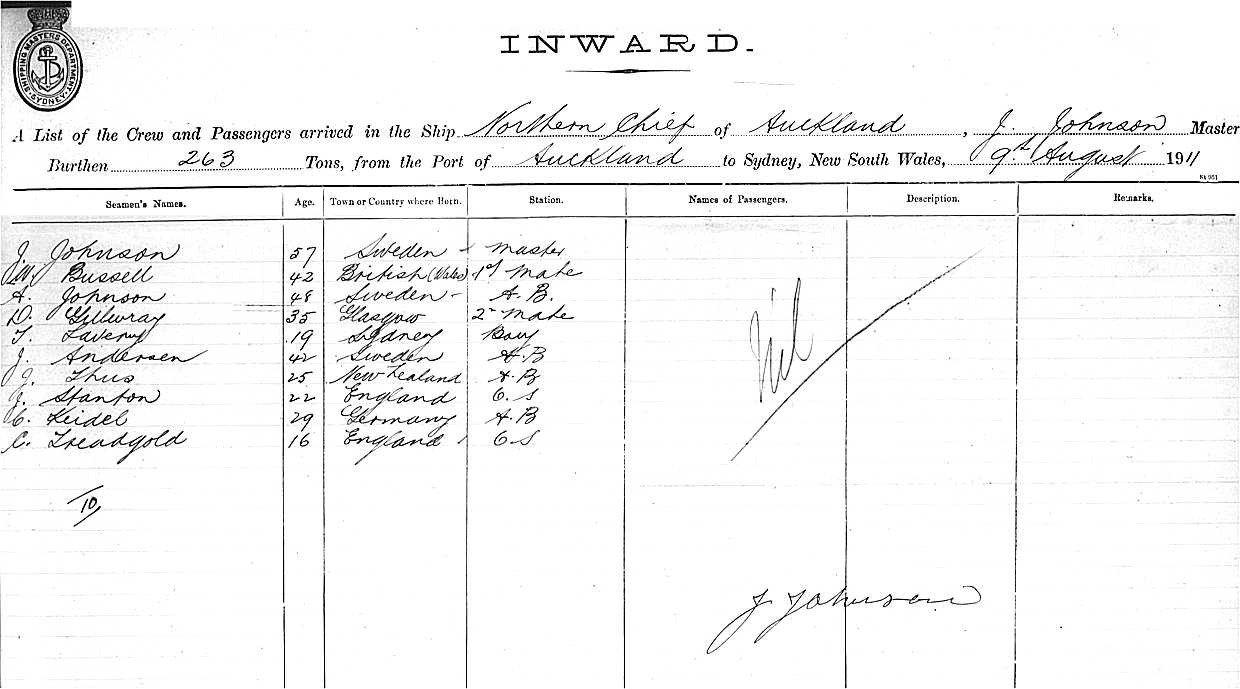 SHIPPING MASTERS DEPARTMENT
SYDNEY
INWARD.
A List of the Crew and Passengers arrived in the Ship Northern Chief of Auckland, J. Johnson Master
Burthen 263 Tons, from the Port of Auckland to Sydney, New South Wales, 9th August 1911
Seamen's Names. Age. Town or Country where Born. Station. Names of Passengers. Description. Remarks.
J. Johnson 57 Sweden - Master
W. Bussell 42 British (Wales) 1st Mate
A. Johnson 48 Sweden - A.B.
D. 35 Glasgow 2nd Mate
T. Lavery 19 Sydney Boy
J. Andersen 42 Sweden A.B
J. Thus 25 New Zealand A.B
J. Stanton 22 England O.S
C. Keidel 29 Germany A.B
C. Treadgold 16 England O.S
Nil
10
J Johnson